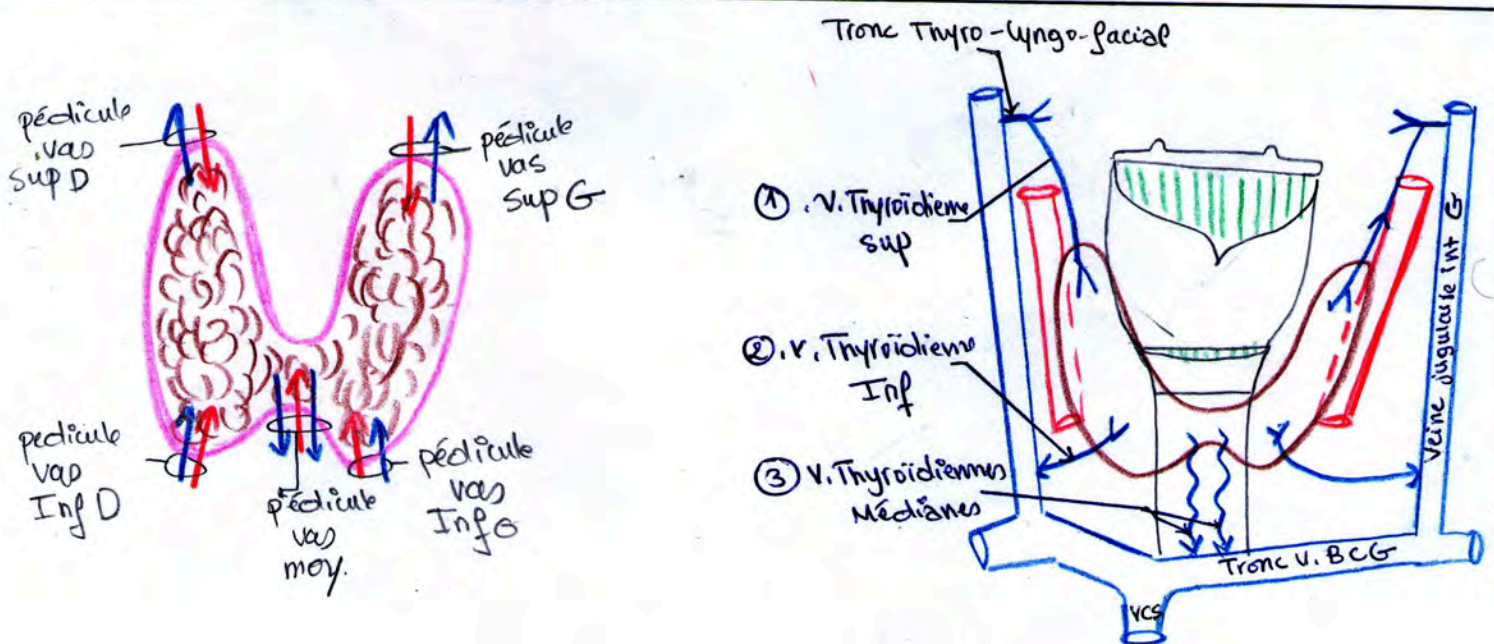 pédicule
vas
sup D
pédicule
vas
sup G
pedicule
vas
Inf D
pédicule
vas
moy.
pédicule
vas
Inf G
Tronc Thyro-lyngo-facial
① . V. Thyroïdienne
sup
② . V. Thyroïdienne
Inf
③ V. Thyroïdiennes
Médianes
Veine jugulaire int G
Tronc V. BCG
VCS